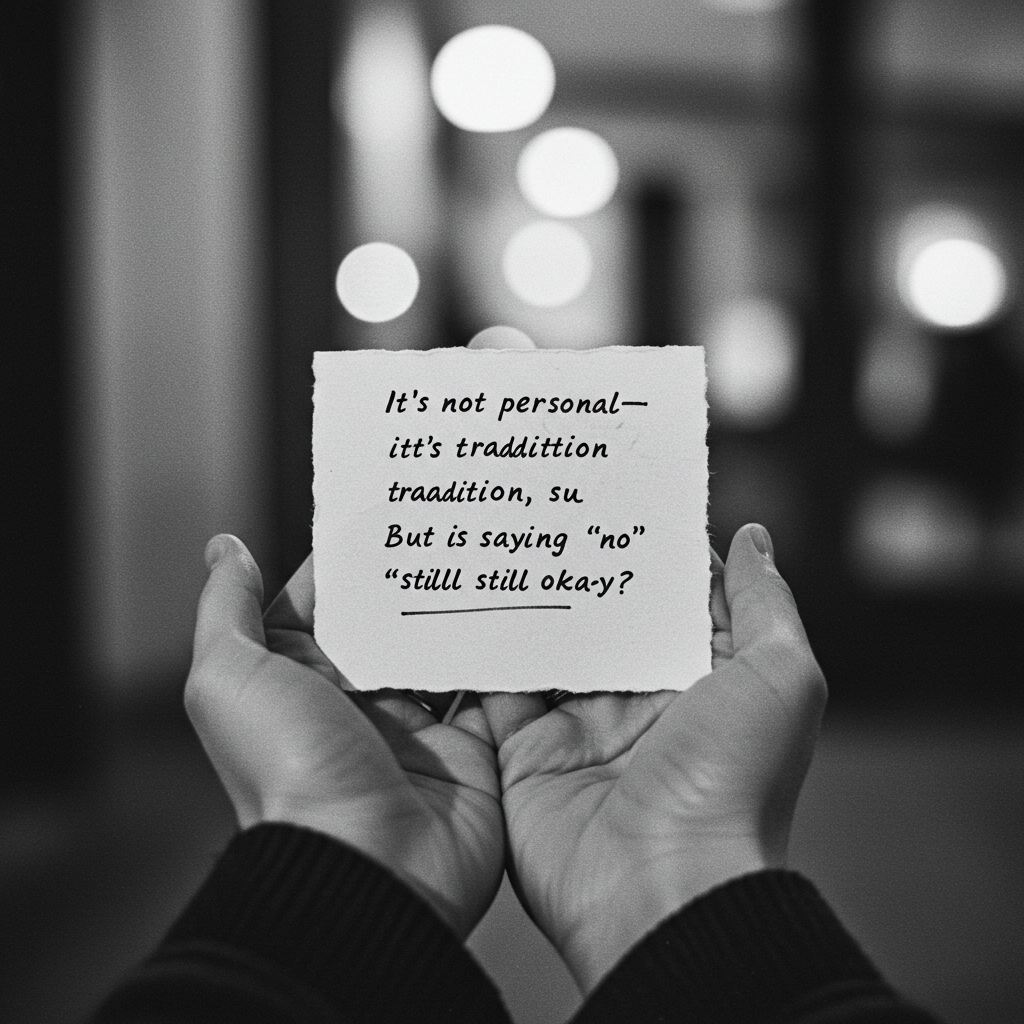 It's not personal—
itt's traddittion
traadition, su
But is saying “no”
“stilll still oka-y?